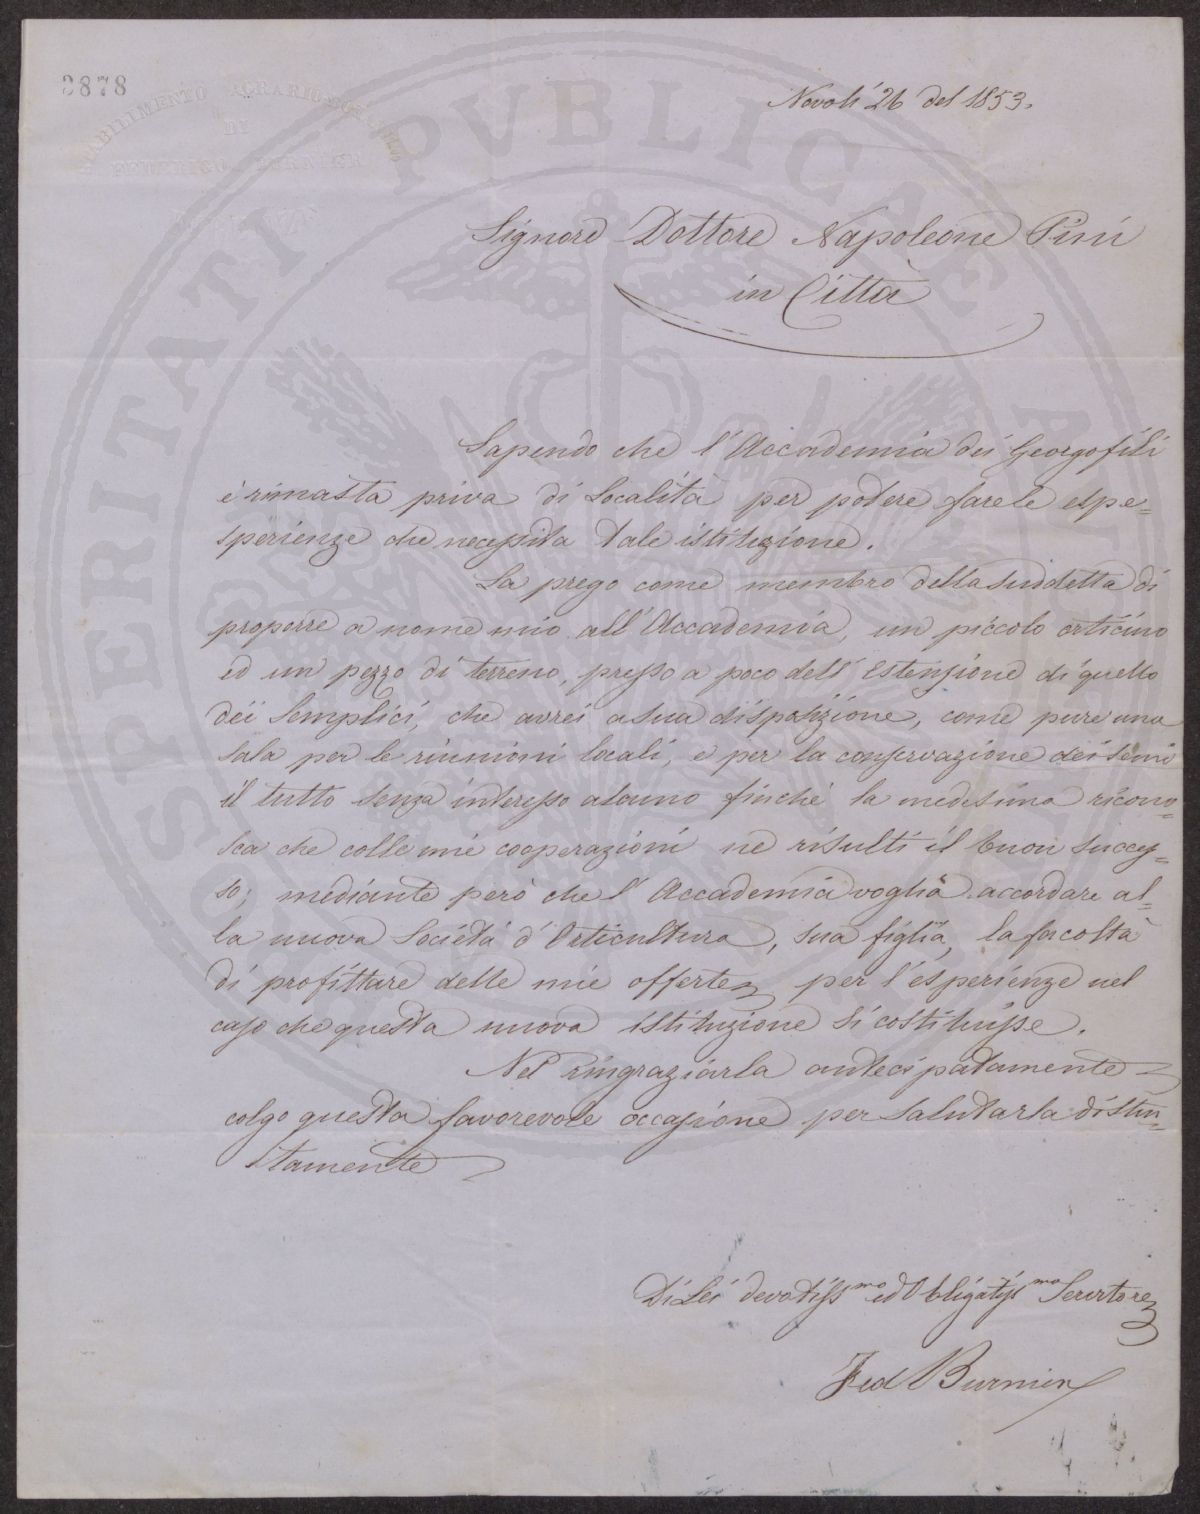 3878
STABILIMENTO AGRARIO
DI
FEDERIGO BURNIER
FIRENZE
PROSPERITATI PVBLICAE
Novoli 26 del 1853.
Signore Dottore Napoleone Pini
in Città
Sapendo che l'Accademia dei Georgofili
è rimasta priva di Località per potere fare le espe=
sperienze che necessita tale istituzione.
La prego come membro della suddetta di
proporre a nome mio all'Accademia, un piccolo orticino
ed un pezzo di terreno, presso a poco dell'Estensione di quello
dei Semplici, che avrei a sua disposizione, come pure una
sala per le riunioni locali, e per la conservazione dei semi
il tutto senza interesso alcuno finché la medesima ricono=
sca che colle mie cooperazioni ne risulti il buon succes=
so; mediante però che l'Accademia voglia accordare al=
la nuova Società d'Orticultura, sua figlia, la facoltà
di profittare delle mie offerte per l'esperienze nel
caso che questa nuova istituzione si costituisse.
Nel ringraziarla antecipatamente
colgo questa favorevole occasione per salutarla distin=
tamente
Di Lei devotiss mo ed Obbligatiss mo Servitore
Fed Burnier